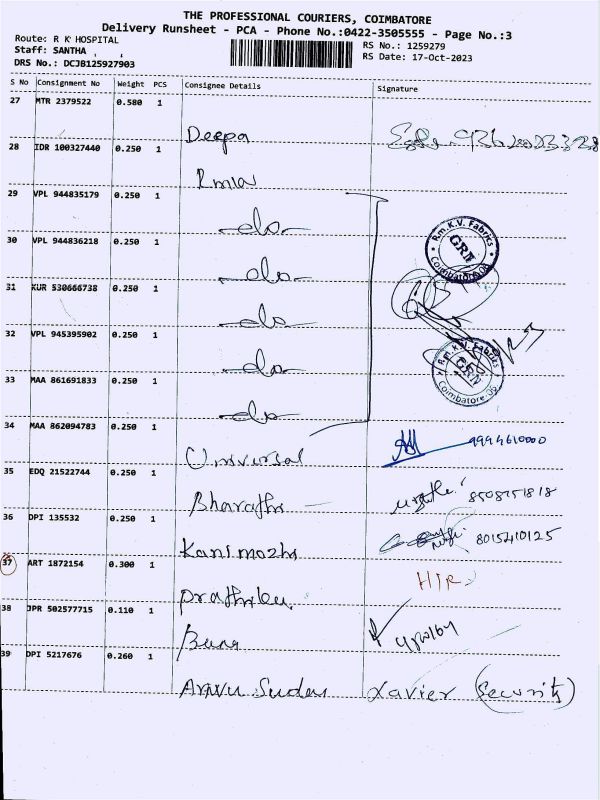 THE PROFESSIONAL COURIERS, COIMBATORE
Delivery Runsheet - PCA - Phone No.:0422-3505555 - Page No.:3
Route: R K HOSPITAL
RS No.: 1259279
Staff: SANTHA
RS Date: 17-Oct-2023
DRS No.: DCJB125927903
S No Consignment No Weight PCS Consignee Details Signature
27 MTR 2379522 0.580 1
Deepa
28 IDR 100327440 0.250 1
29 VPL 944835179 0.250 1
-do-
30 VPL 944836218 0.250 1
-do-
31 KUR 530666738 0.250 1
-do-
32 VPL 945395902 0.250 1
-do-
33 MAA 861691833 0.250 1
-do-
Rm.K.V. Fabrics
GRN
Coimbatore 09
Rm.K.V. Fabrics
GRN
Coimbatore 09
34 MAA 862094783 0.250 1
Universal 9994610000
35 EDQ 21522744 0.250 1
Bharathi 8508751818
36 DPI 135532 0.250 1
Kanimozhi 8015410125
37 ART 1872154 0.300 1
HIR
38 JPR 502577715 0.110 1
39 DPI 5217676 0.260 1
Xavier (Security)